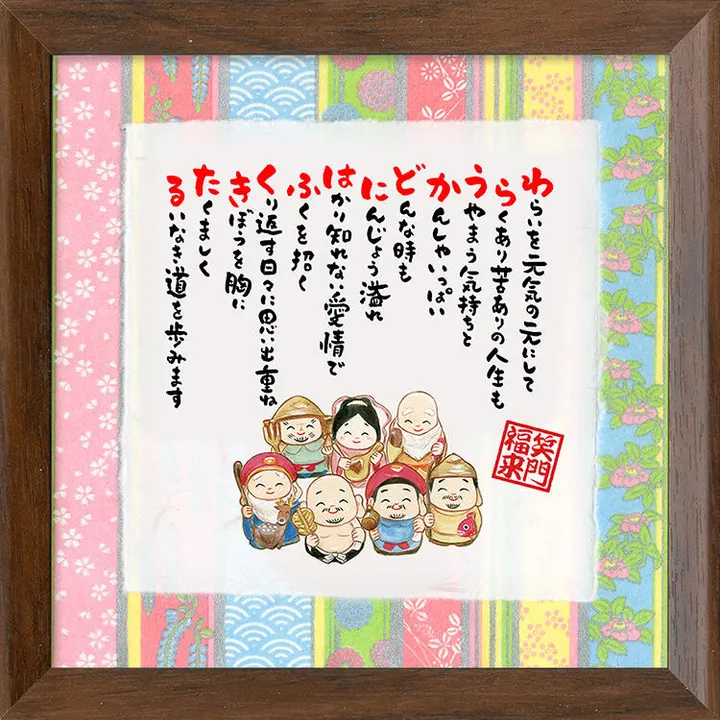 わらいを元気の元にして
らくあり苦ありの人生も
うやまう気持ちと
かんしゃいっぱい
どんな時も
にんじょう溢れ
はかり知れない愛情で
ふくを招く
くり返す日々に思い出重ね
きぼつを胸に
たくましく
るいなき道を歩みます
笑門
福来